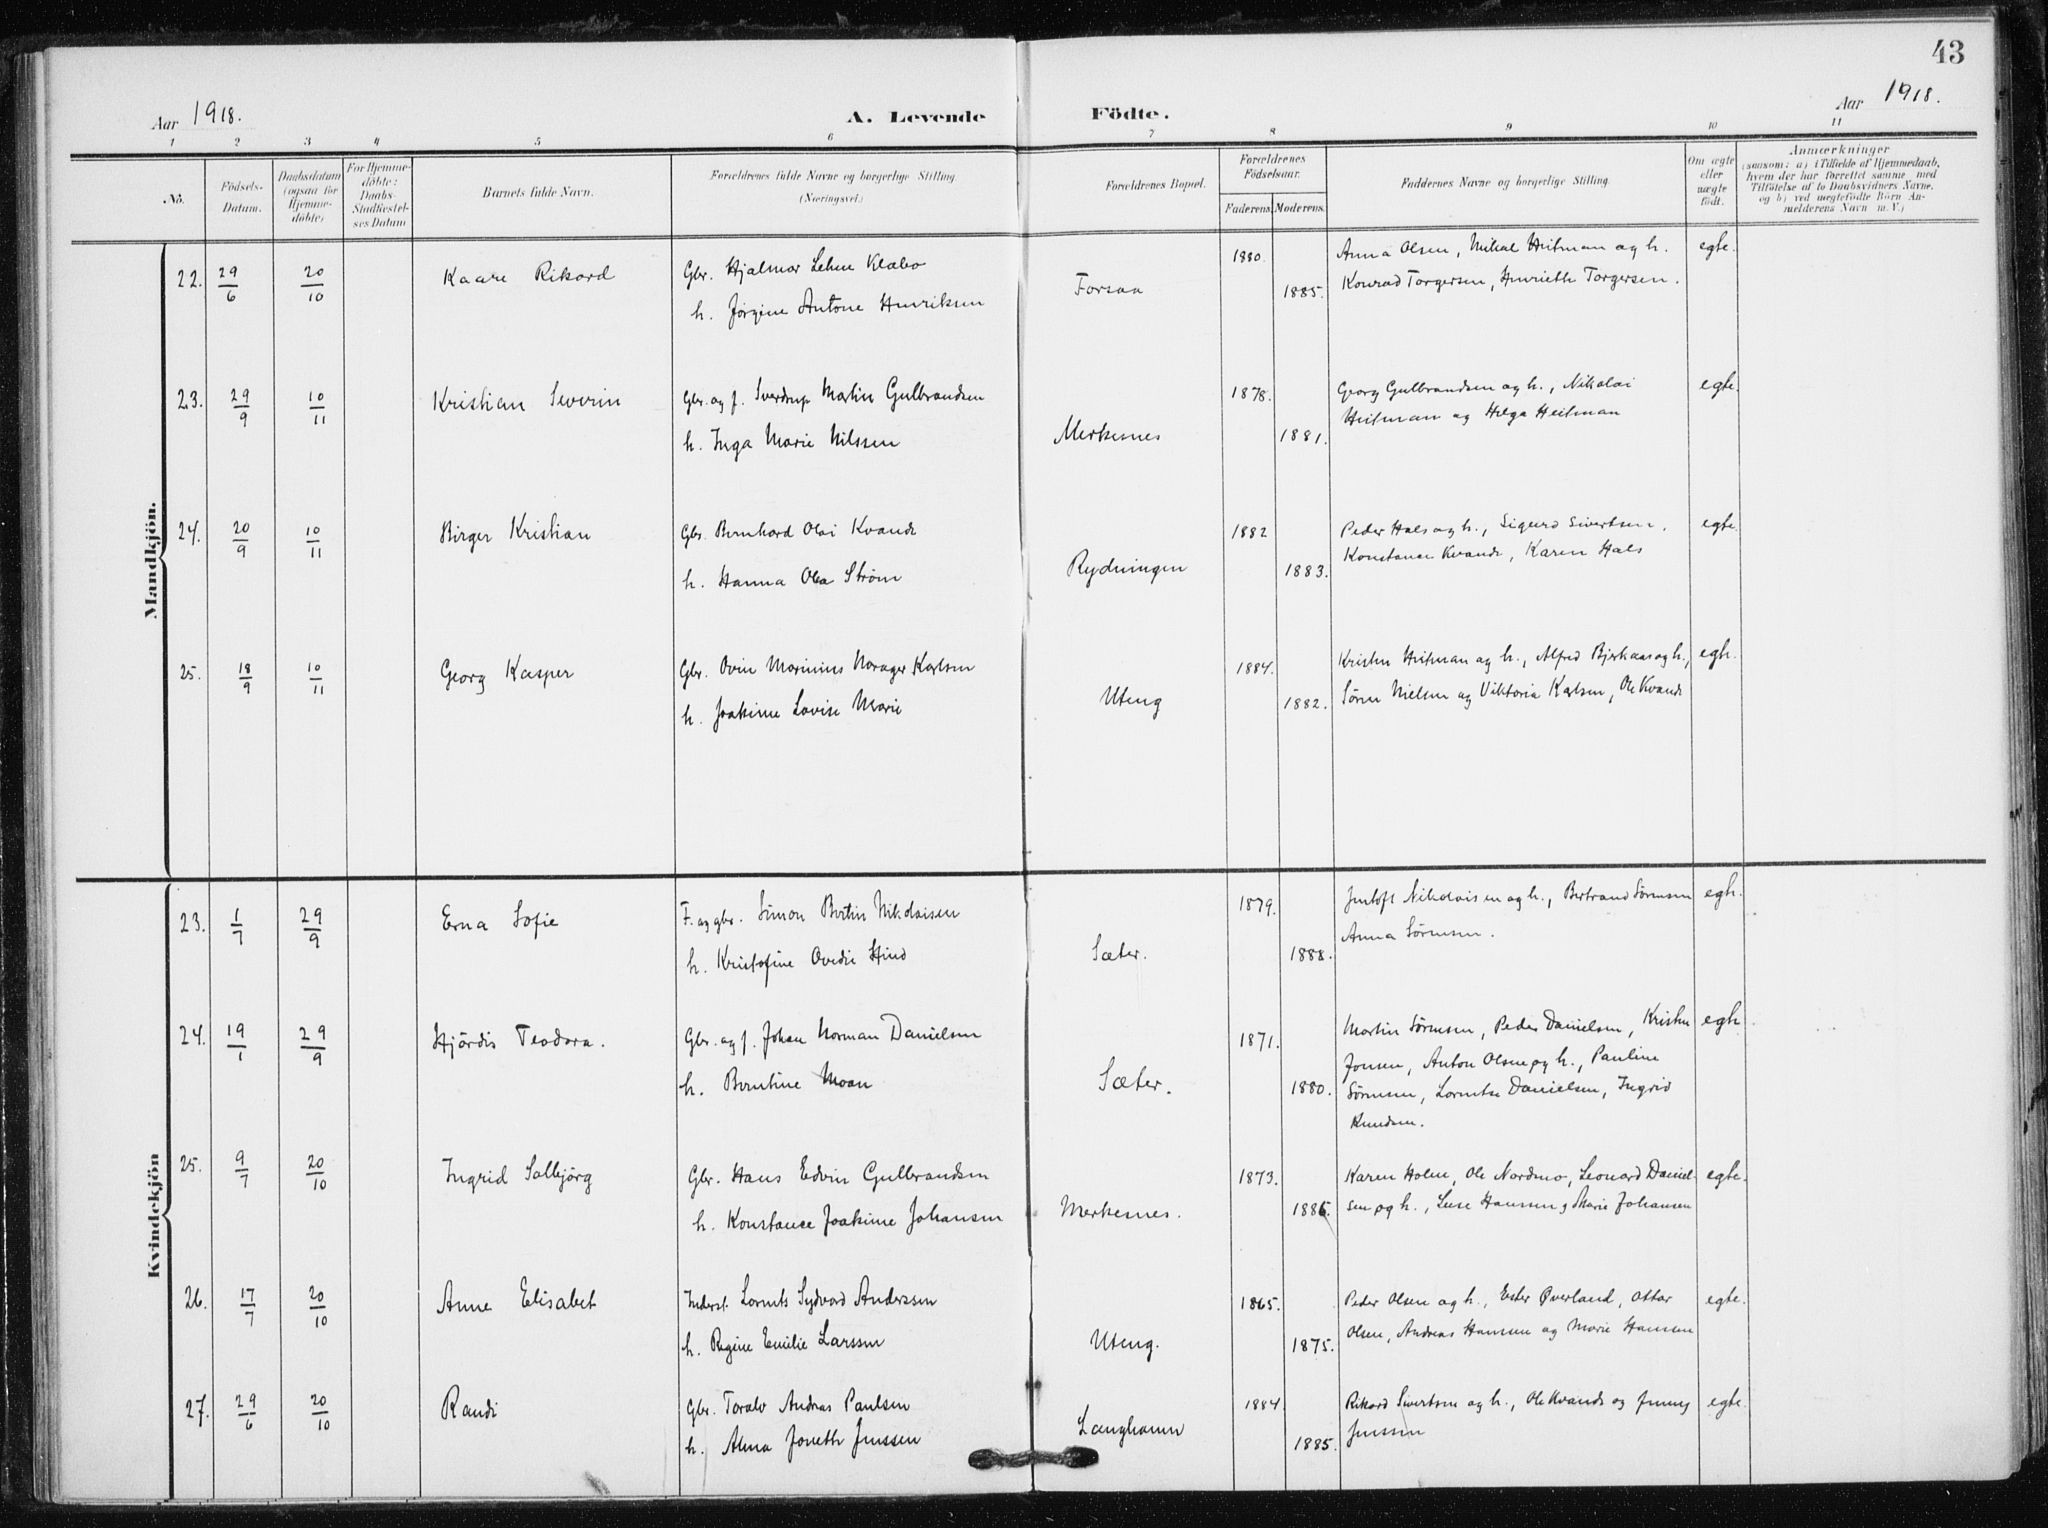 43
Aar 1918.
A. Levende Födte.
Aar 1918.
1 2 3 4 5 6 7 8 9 10 11
No.
Födsels-Datum.
Daabsdatum (ogsaa for Hjemme-döbte)
For Hjemme-döbte: Daabs-Stadfæstel-ses Datum
Barnets fulde Navn.
Forældrenes fulde Navne og borgerlige Stilling (Næringsvei.)
Forældrenes Bopæl.
Forældrenes Födselsaar.
Faderens. Moderens.
Faddernes Navne og borgerlige Stilling.
Om ægte eller uægte födt.
Anmærkninger
(saasom: a) i Tilfælde af Hjemmedaab,
hvem der har forrettet samme med
Tilföielse af to Daabsvidners Navne,
og b) ved uægtefödte Börn An-
melderens Navn m. V.)
Mandkjön.
22. 29/6 20/10 Kaare Rikard Gbr. Hjalmar Lehn Klæbo 1880. Anna Olsen, Mikal Heitman og h. egte.
h. Jørgine Antone Henriksen Forsaa 1885. Konrad Torgersen, Henriette Torgersen.
23. 29/9 10/11 Kristian Severin Gbr. og f. Sverdrup Martin Gulbrandsen 1878. Georg Gulbrandsen og h., Nikolai egte.
h. Inga Marie Nilssen Merkesnes 1881. Heitman og Helga Heitman
24. 20/9 10/11 Birger Kristian Gbr. Bernhard Olai Kvande 1882 Peder Hals og h., Sigurd Sivertsen, egte.
h. Hanna Olea Strøm Rydningen 1883. Konstance Kvande, Karen Hals
25. 18/9 10/11 Georg Kasper Gbr. Ovin Marinius Norager Karlsen 1884. Kristen Heitman og h., Alfred Bjerkaas og h., egte.
h. Joakime Lovise Marie Uteng 1882. Søren Nielsen og Viktoria Karlsen, Ole Kvande
Kvindekjön
23. 1/7 29/9 Erna Sofie F. og gbr. Simon Bertin Nikolaisen 1879. Jentoft Nikolaisen og h., Bertrand Sørensen egte.
h. Kristofine Ovedie Hind Sæter. 1888. Anna Sørensen.
24. 19/1 29/9 Hjördis Teodora. Gbr. og f. Johan Norman Danielsen 1871. Martin Sørensen, Peder Danielsen, Kristen egte.
h. Berntine Moan Sæter. 1880. Jensen, Anton Olsen og h., Pauline
Sørensen, Lorentse Danielsen, Ingrid
Knudsen.
25. 9/7 20/10 Ingrid Solbjörg Gbr. Hans Edvin Gulbrandsen 1873. Karen Holm, Ole Nordmo, Leonard Daniel- egte.
h. Konstance Joakime Johansen Merkesnes. 1886. sen og h., Luise Hanssen, Marie Johansen
26. 17/7 20/10 Anne Elisabet Inderst. Lorents Sydvard Anderssen 1865. Peder Olsen og h., Ester Øverland, Ottar egte.
h. Regine Emilie Larssen Uteng. 1875. Olsen, Andreas Hanssen og Marie Hanssen
27. 29/6 20/10 Randi Gbr. Toralv Andreas Paulsen 1884 Rikard Sivertsen og h., Ole Kvande og Jenny egte.
h. Alma Jonette Jenssen Langhamn 1885. Jenssen